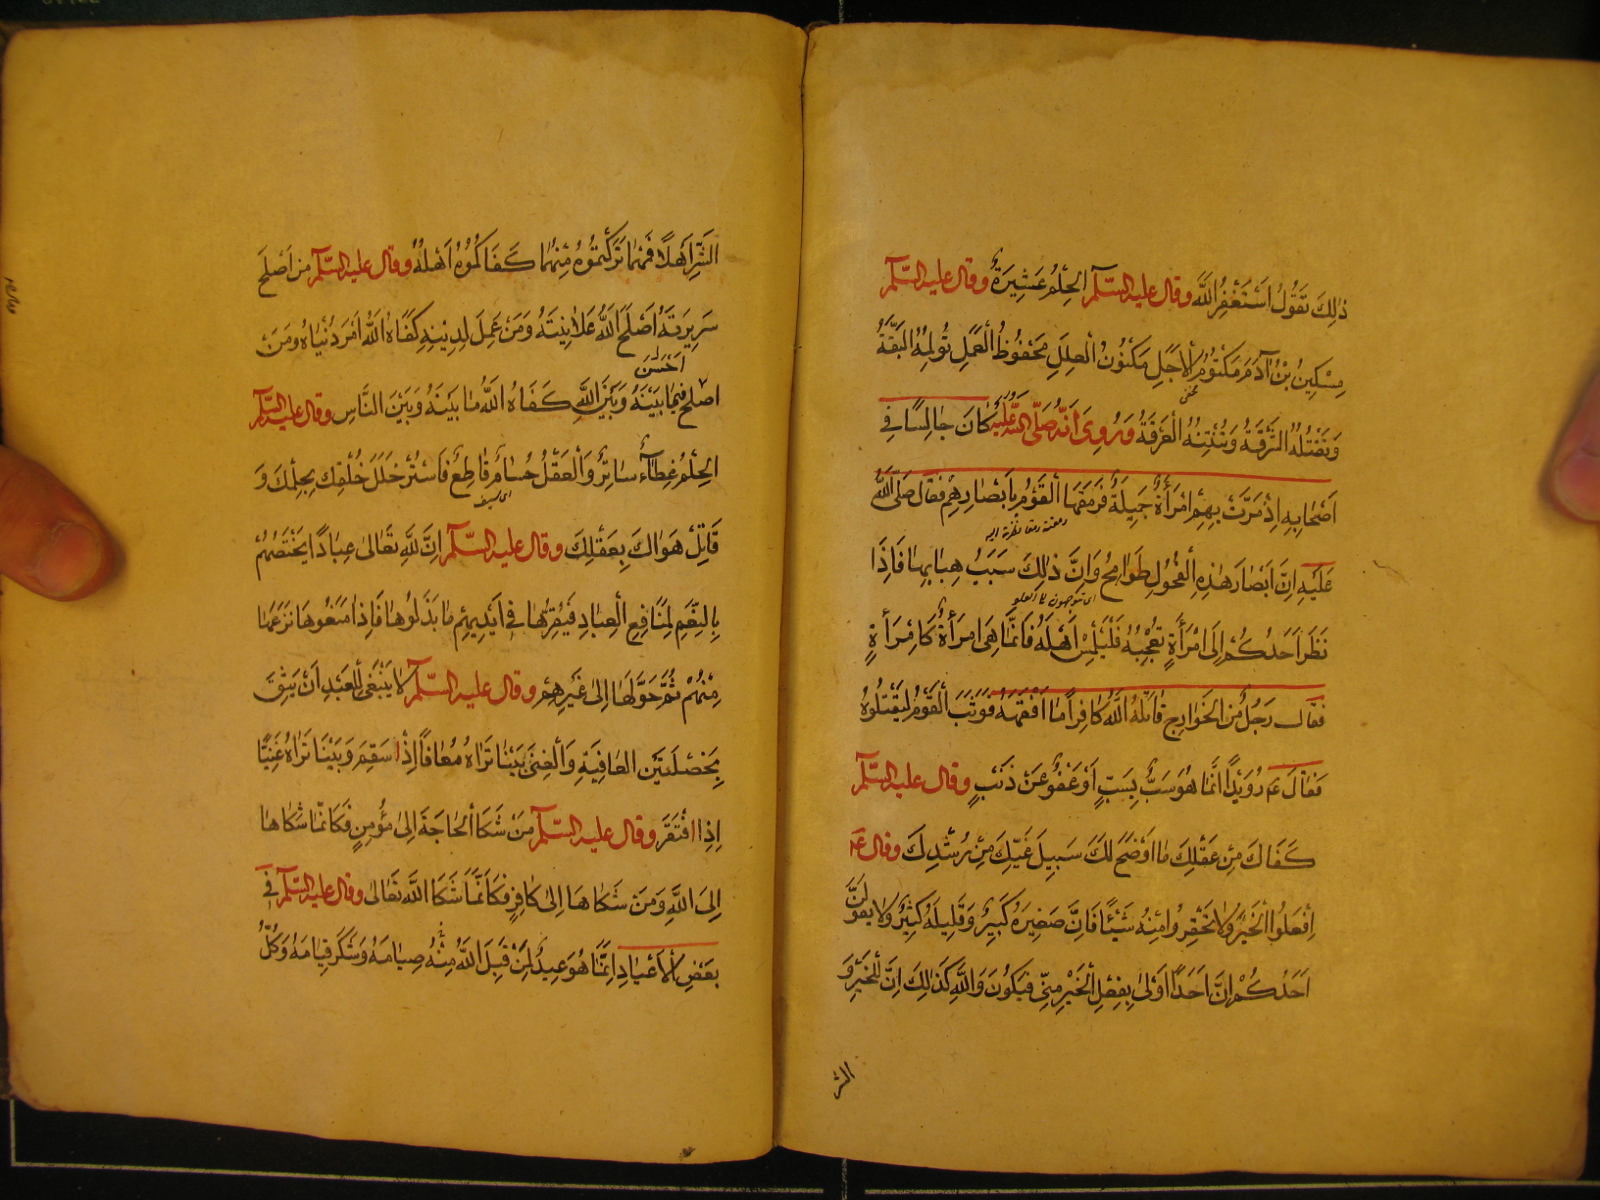 ذٰلِكَ تَقُولُ اَسْتَغْفِرُ اللّٰهَ وقال عليه السّلم الحِلْمُ عَشِيرَةٌ وقال عليه السّلم
مِسْكِينُ بْنُ اٰدَمَ مَكْتُومُ الْاَجَلِ مَكْنُونُ الْعِلَلِ مَحْفُوظُ الْعَمَلِ تُولِمُهُ الْبَقَّةُ
وَتَقْتُلُهُ الشَّرْقَةُ وَتُنْتِنُهُ الْعَرْقَةُ وَرُوِىَ اَنَّهُ صَلَّى اللّٰهُ عَلَيْهِ كَانَ جَالِسًا فِي
اَصْحَابِهِ اِذْ مَرَّتْ بِهِمِ امْرَأَةٌ جَمِيلَةٌ فَرَمَقَهَا الْقَوْمُ بِاَبْصَارِهِمْ فَقَالَ صَلَّى اللّٰهُ
عَلَيْهِ اِنَّ اَبْصَارَ هٰذِهِ الْفُحُولِ طَوَامِحُ وَاِنَّ ذٰلِكَ سَبَبُ هِبَابِهَا فَاِذَا
نَظَرَ اَحَدُكُمْ اِلَى امْرَأَةٍ تُعْجِبُهُ فَلْيَلْمِسْ اَهْلَهُ فَاِنَّمَا هِىَ امْرَأَةٌ كَامْرَأَةٍ
فقال رَجُلٌ مِنَ الْخَوَارِجِ قَاتَلَهُ اللّٰهُ كَافِرًا مَا اَفْقَهَهُ فَوَثَبَ الْقَوْمُ لِيَقْتُلُوهُ
فَقَالَ عم رُوَيْدًا اِنَّمَا هُوَ سَبٌّ بِسَبٍّ اَوْ عَفْوٌ عَنْ ذَنْبٍ وقال عليه السّلم
كَفَاكَ مِنْ عَقْلِكَ مَا اَوْضَحَ لَكَ سَبِيلَ غَيِّكَ مِنْ رُشْدِكَ وقال عم
اِفْعَلُوا الْخَيْرَ وَلَا تَحْقِرُوا مِنْهُ شَيْئًا فَاِنَّ صَغِيرَهُ كَبِيرٌ وَقَلِيلَهُ كَثِيرٌ وَلَا يَقُولَنَّ
اَحَدُكُمْ اِنَّ اَحَدًا اَوْلٰى بِفِعْلِ الْخَيْرِ مِنِّى فَيَكُونَ وَاللّٰهِ كَذٰلِكَ اِنَّ لِلْخَيْرِ وَ
الشر
الشَّرِّ اَهْلًا فَمَهْمَا تَرَكْتُمُوهُ مِنْهُمَا كَفَاكُمُوهُ اَهْلُهُ وقال عليه السّلم من اَصْلَحَ
سَرِيرَتَهُ اَصْلَحَ اللّٰهُ عَلَانِيَتَهُ وَمَنْ عَمِلَ لِدِينِهِ كَفَاهُ اللّٰهُ اَمْرَ دُنْيَاهُ وَمَنْ
اَحْسَنَ
اصلح فِيمَا بَيْنَهُ وَبَيْنَ اللّٰهِ كَفَاهُ اللّٰهُ مَا بَيْنَهُ وَبَيْنَ النَّاسِ وقال عليه السّلم
الحِلْمُ غِطَاءٌ سَاتِرٌ وَالْعَقْلُ حُسَامٌ قَاطِعٌ فَاسْتُرْ خَلَلَ خُلُقِكَ بِحِلْمِكَ وَ
اى سيف
قَاتِلْ هَوَاكَ بِعَقْلِكَ وقال عليه السّلم اِنَّ لِلّٰهِ تَعَالٰى عِبَادًا يَخْتَصُّهُمْ
بِالنِّعَمِ لِمَنَافِعِ الْعِبَادِ فَيُقِرُّهَا فِى اَيْدِيهِمْ مَا بَذَلُوهَا فَاِذَا مَنَعُوهَا نَزَعَهَا
مِنْهُمْ ثُمَّ حَوَّلَهَا اِلٰى غَيْرِهِمْ وقال عليه السّلم لَا يَنْبَغِى لِلْعَبْدِ اَنْ يَثِقَ
بِخَصْلَتَيْنِ العَافِيَةِ وَالْغِنٰى بَيْنَا تَرَاهُ مُعَافًا اِذَا سَقِمَ وَبَيْنَا تَرَاهُ غَنِيًّا
اِذِ افْتَقَرَ وقال عليه السّلم مَنْ شَكَا الْحَاجَةَ اِلٰى مُؤْمِنٍ فَكَاَنَّمَا شَكَاهَا
اِلَى اللّٰهِ وَمَنْ شَكَاهَا اِلٰى كَافِرٍ فَكَاَنَّمَا شَكَا اللّٰهَ تَعَالٰى وقال عليه السّلم فى
بَعْضِ الْاَعْيَادِ اِنَّمَا هُوَ عِيدٌ لِمَنْ قَبِلَ اللّٰهُ مِنْهُ صِيَامَهُ وَشَكَرَ قِيَامَهُ وَكُلُّ